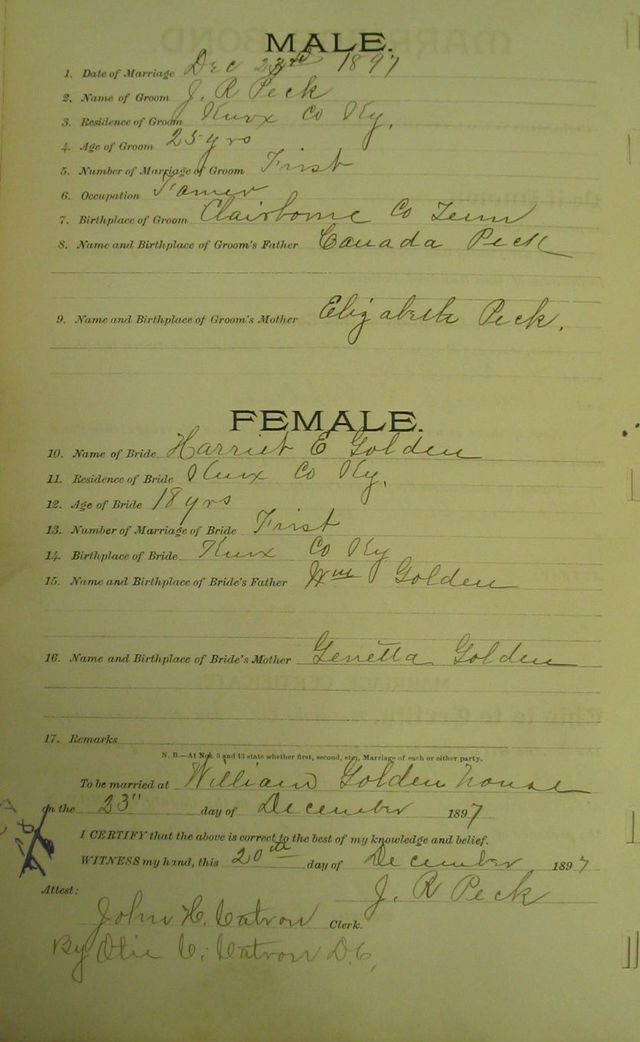 MALE.
1. Date of Marriage Dec 23rd 1897
2. Name of Groom J. R Peck
3. Residence of Groom Knox Co Ky.
4. Age of Groom 25 yrs
5. Number of Marriage of Groom First
6. Occupation Famer
7. Birthplace of Groom Clairborne Co Tenn
8. Name and Birthplace of Groom's Father Canada Peck
9. Name and Birthplace of Groom's Mother Elizabeth Peck.
FEMALE.
10. Name of Bride Harriet E Golden
11. Residence of Bride Knox Co Ky.
12. Age of Bride 18 yrs
13. Number of Marriage of Bride First
14. Birthplace of Bride Knox Co Ky
15. Name and Birthplace of Bride's Father Wm Golden
16. Name and Birthplace of Bride's Mother Genetta Golden
17. Remarks
N. B.—At Nos. 5 and 13 state whether first, second, etc., Marriage of each or either party.
To be married at William Golden house
on the 23" day of December 1897
I CERTIFY that the above is correct to the best of my knowledge and belief.
WITNESS my hand, this 20th day of December 1897
J. R Peck
Attest:
John H. Catron Clerk.
By Olie C. Catron D.C.